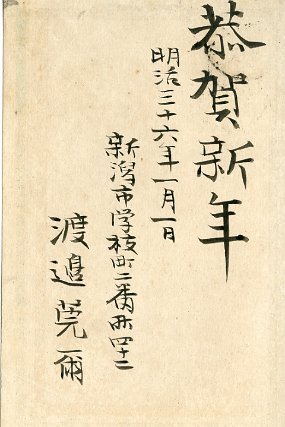 恭賀新年
明治三十六年一月一日
新潟市学校町二番町四十二
渡邉莞爾